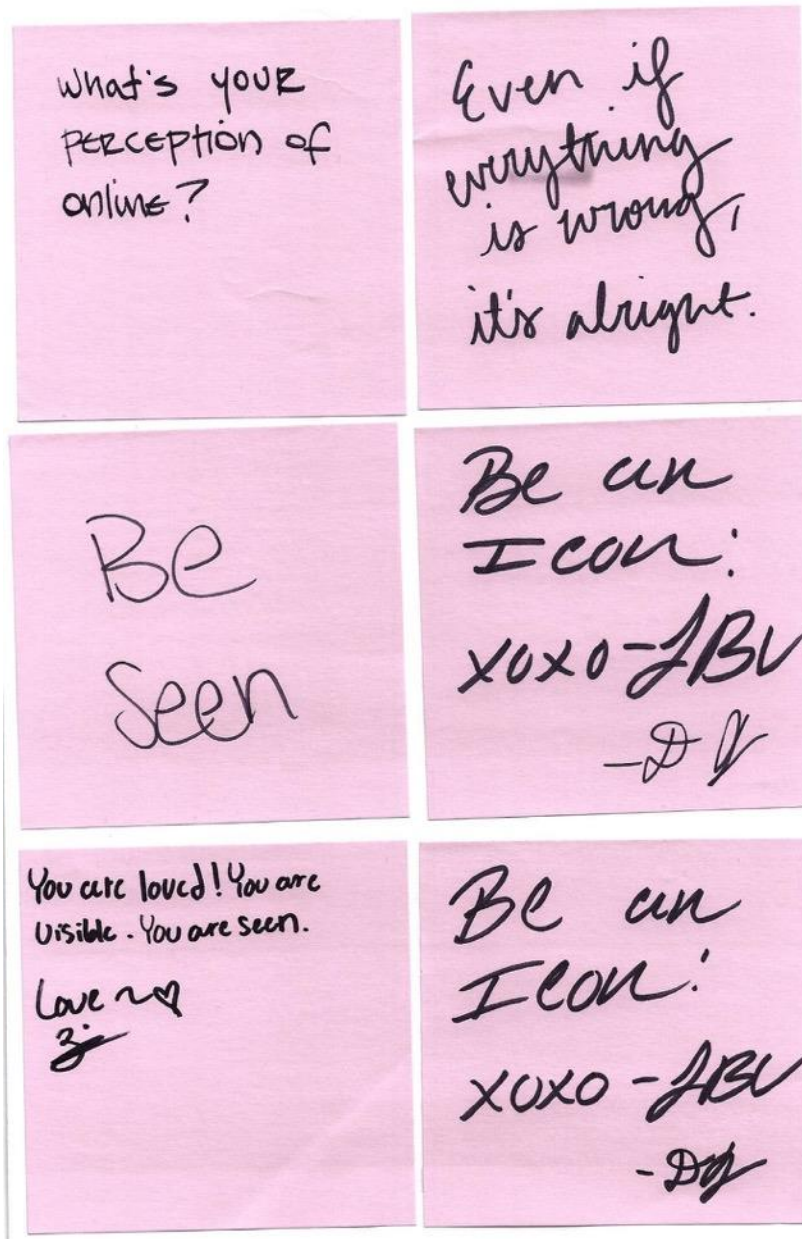 What's your
perception of
online?
Even if
everything
is wrong,
it's alright.
Be
Seen
Be an
Icon!
xoxo-JBV
You are loved! You are
visible. You are seen.
Love ~♡
Be an
Icon!
xoxo-JBV